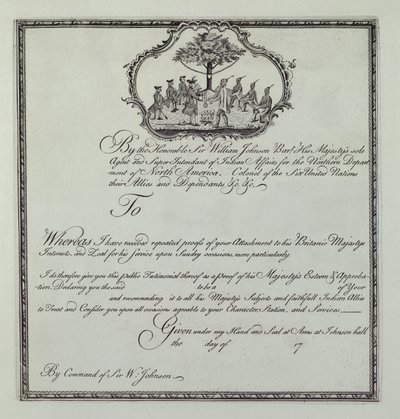 By the Honorable Sir William Johnson Bart. His Majesty's sole
Agent and Super Intendant of Indian Affairs for the Northern Depart
ment of North America, Colonel of the Six United Nations
their Allies and Dependants &c. &c.
To
Whereas I have received repeated proofs of your Attachment to his Britanic Majestys
Interests, and Zeal for his Service upon Sundry occasions, more particularly
I do therefore give you this public Testimonial thereof as a proof of his Majesty's Esteem & Approba
tion, Declaring you the said to be a of Your
and recommending it to all his Majesty's Subjects and faithfull Indian Allies
to Treat and Consider you upon all occasions agreable to your Character, Station, and Services
Given under my Hand and Seal at Arms at Johnson hall
the day of 17
By Command of Sir W: Johnson